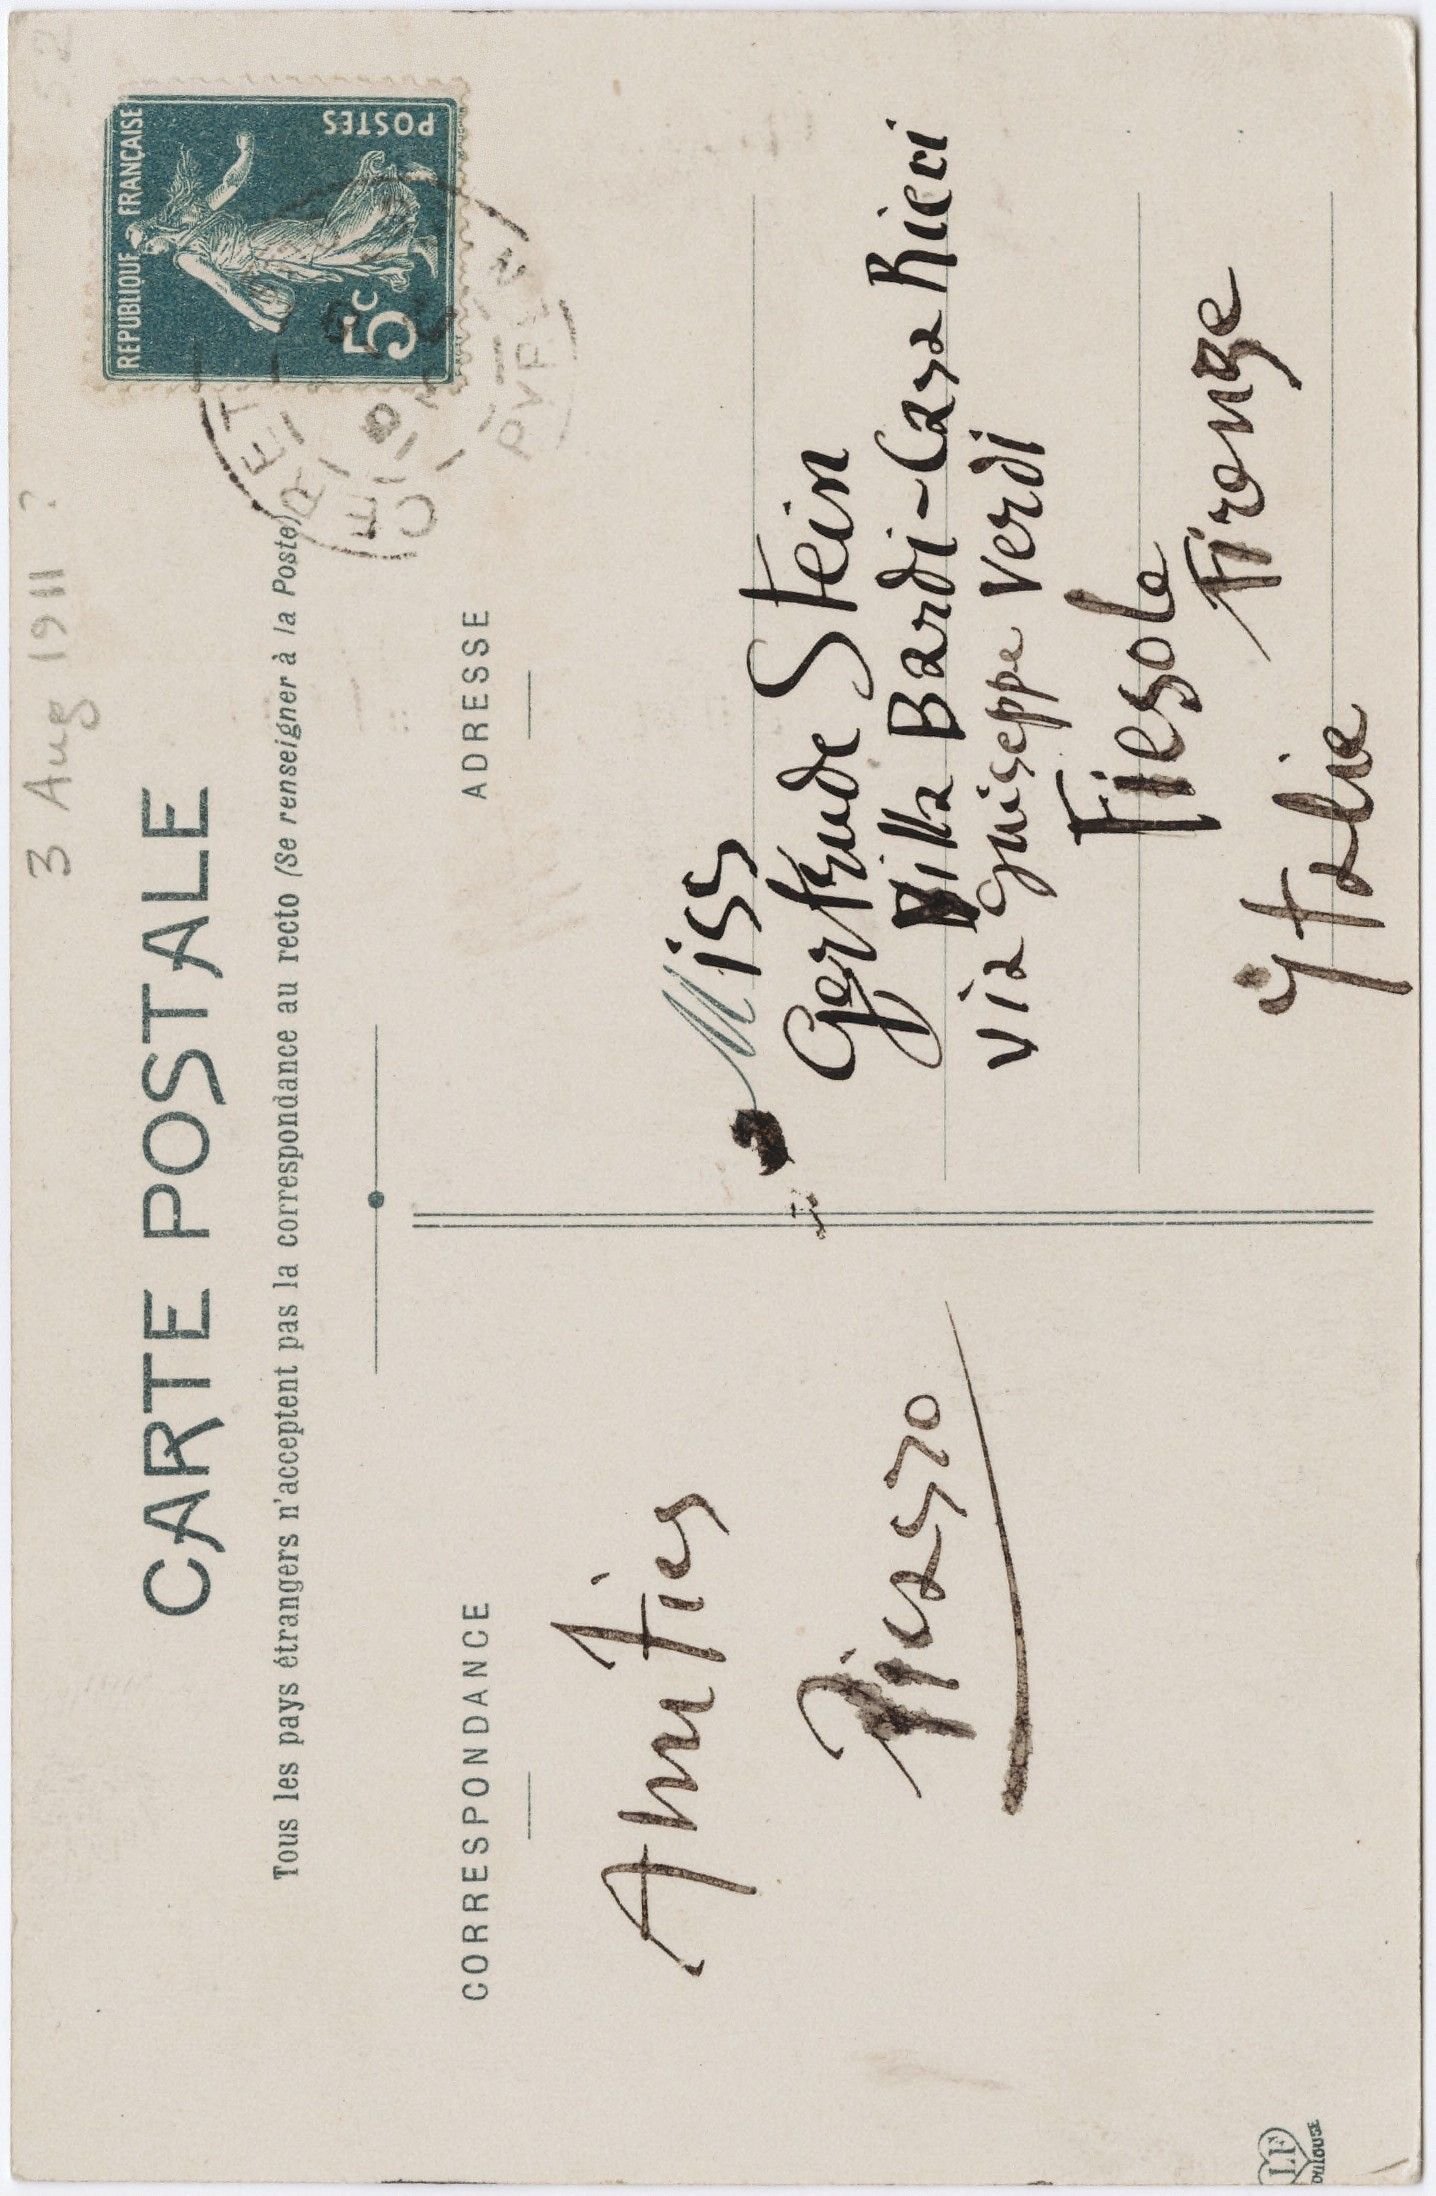 3 Aug 1911 ?
CARTE POSTALE
Tous les pays étrangers n'acceptent pas la correspondance au recto (Se renseigner à la Poste)
REPUBLIQUE FRANÇAISE
POSTES
5c
CERET
CORRESPONDANCE
Amities
Picasso
ADRESSE
Miss
Gertrude Stein
Villa Bardi-Casa Ricci
Via Guiseppe Verdi
Fiesole
Firenze
Ytalie
LF
TOULOUSE